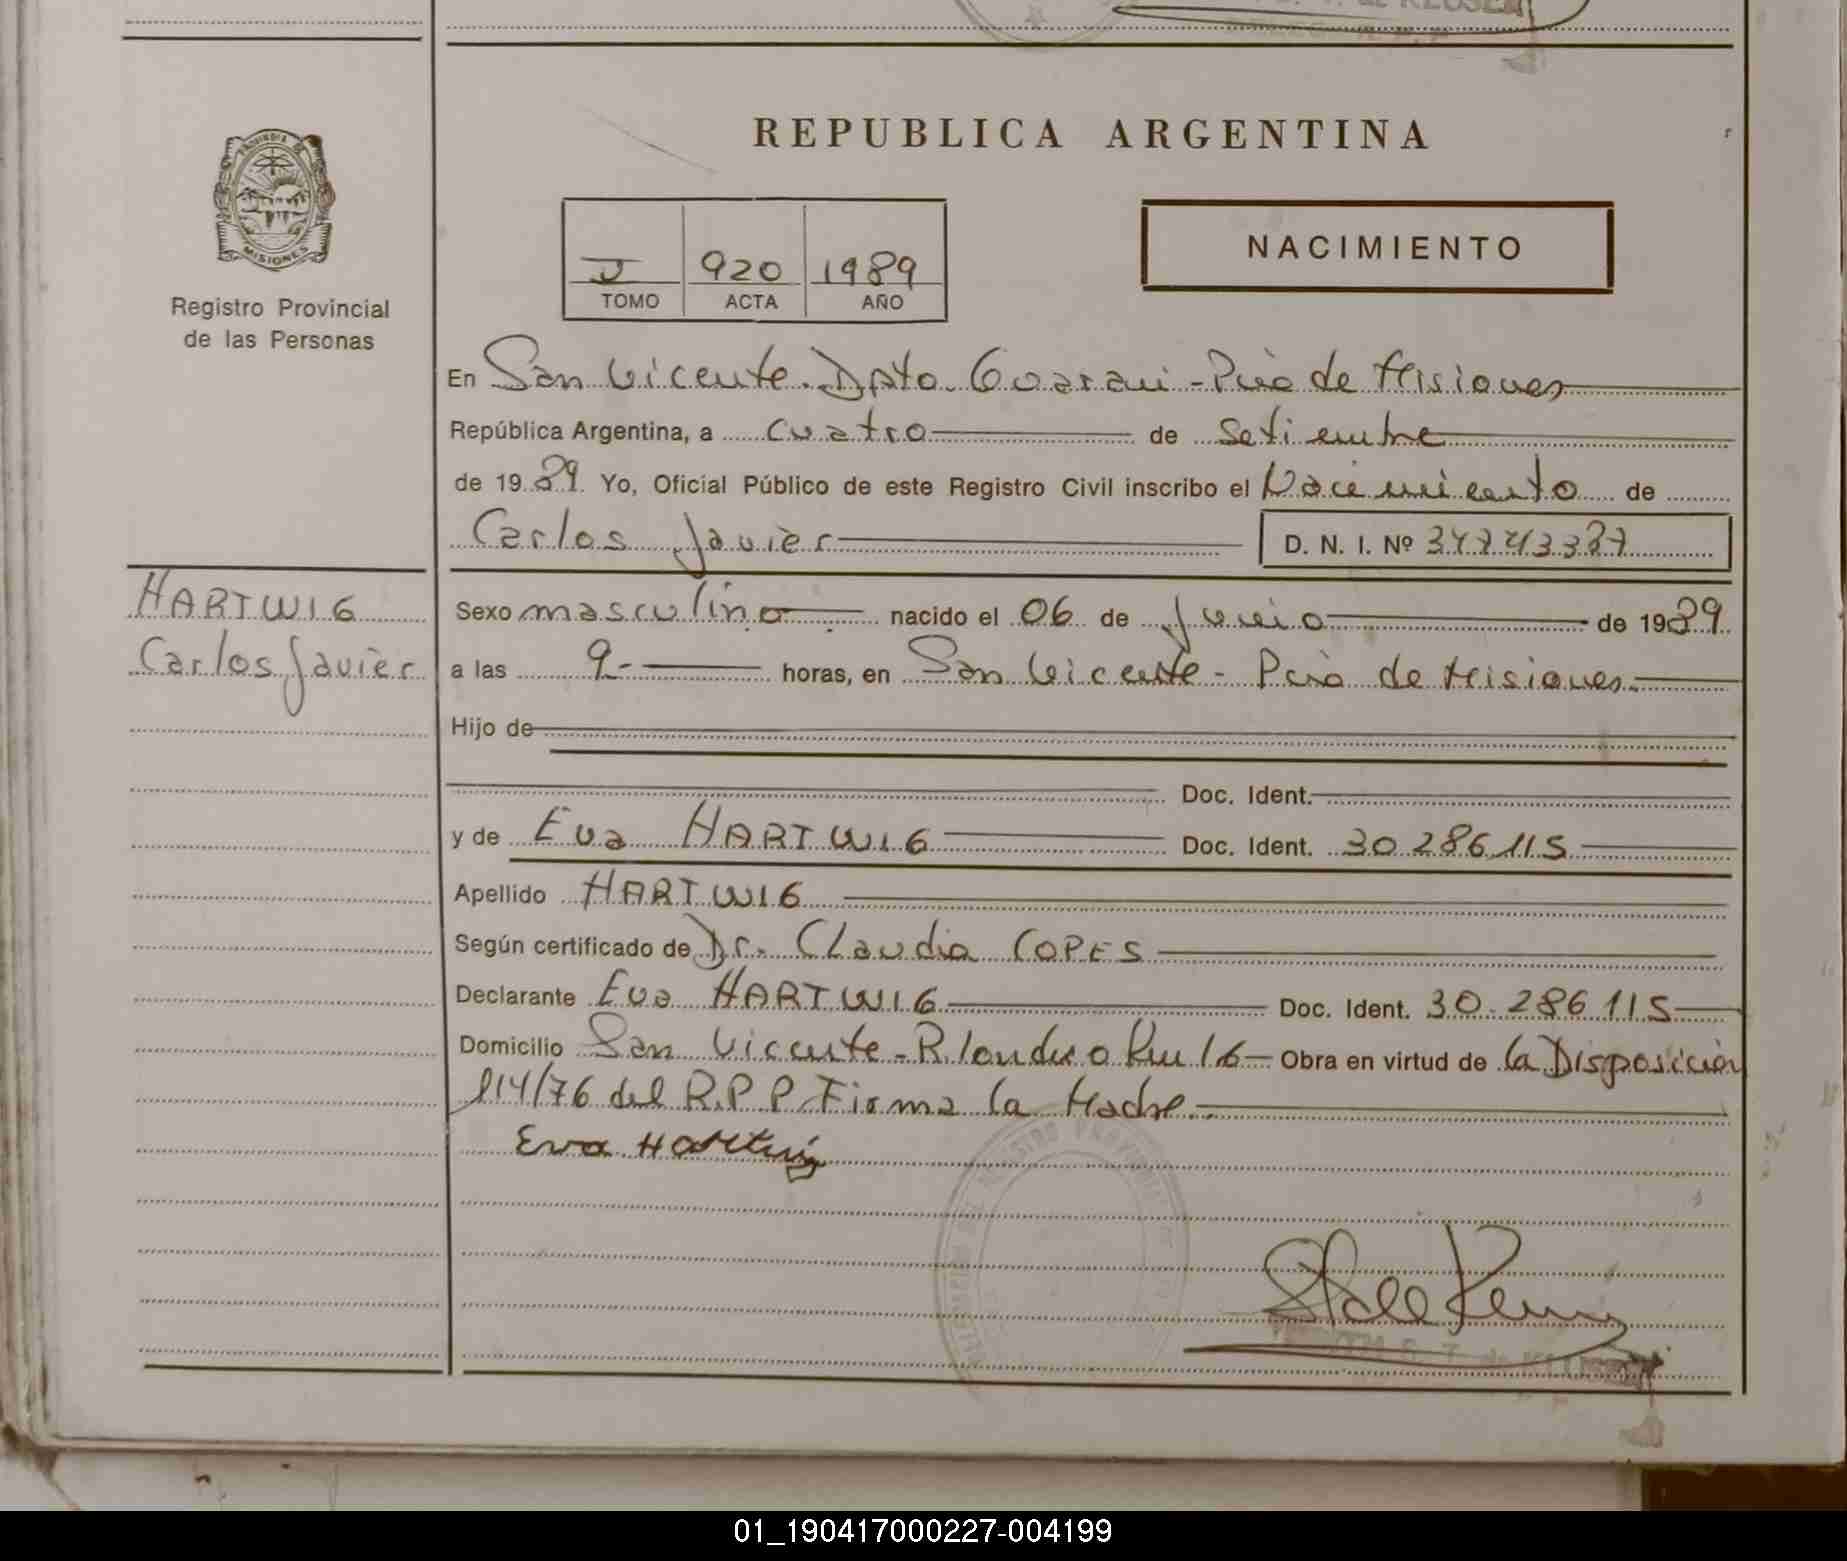 REPUBLICA ARGENTINA
920 1989
TOMO ACTA AÑO
NACIMIENTO
MISIONES
Registro Provincial
de las Personas
En San Vicente. Dpto. Guarani - Pcia de Misiones
República Argentina, a cuatro de Setiembre
de 1989 Yo, Oficial Público de este Registro Civil inscribo el Nacimiento de
Carlos Javier D. N. I. Nº
HARTWIG
Carlos Javier
Sexo masculino nacido el 06 de Junio de 1989
a las 9- horas, en San Vicente - Pcia de Misiones.
Hijo de
Doc. Ident.
y de Eva HARTWIG Doc. Ident. 30286115
Apellido HARTWIG
Según certificado de Dr. Claudia COPES
Declarante Eva HARTWIG Doc. Ident. 30.286115
Domicilio San Vicente - Km 16 Obra en virtud de la Disposición
114/76 del R.P.P. Firma la Madre
Eva Hartwig
01_190417000227-004199